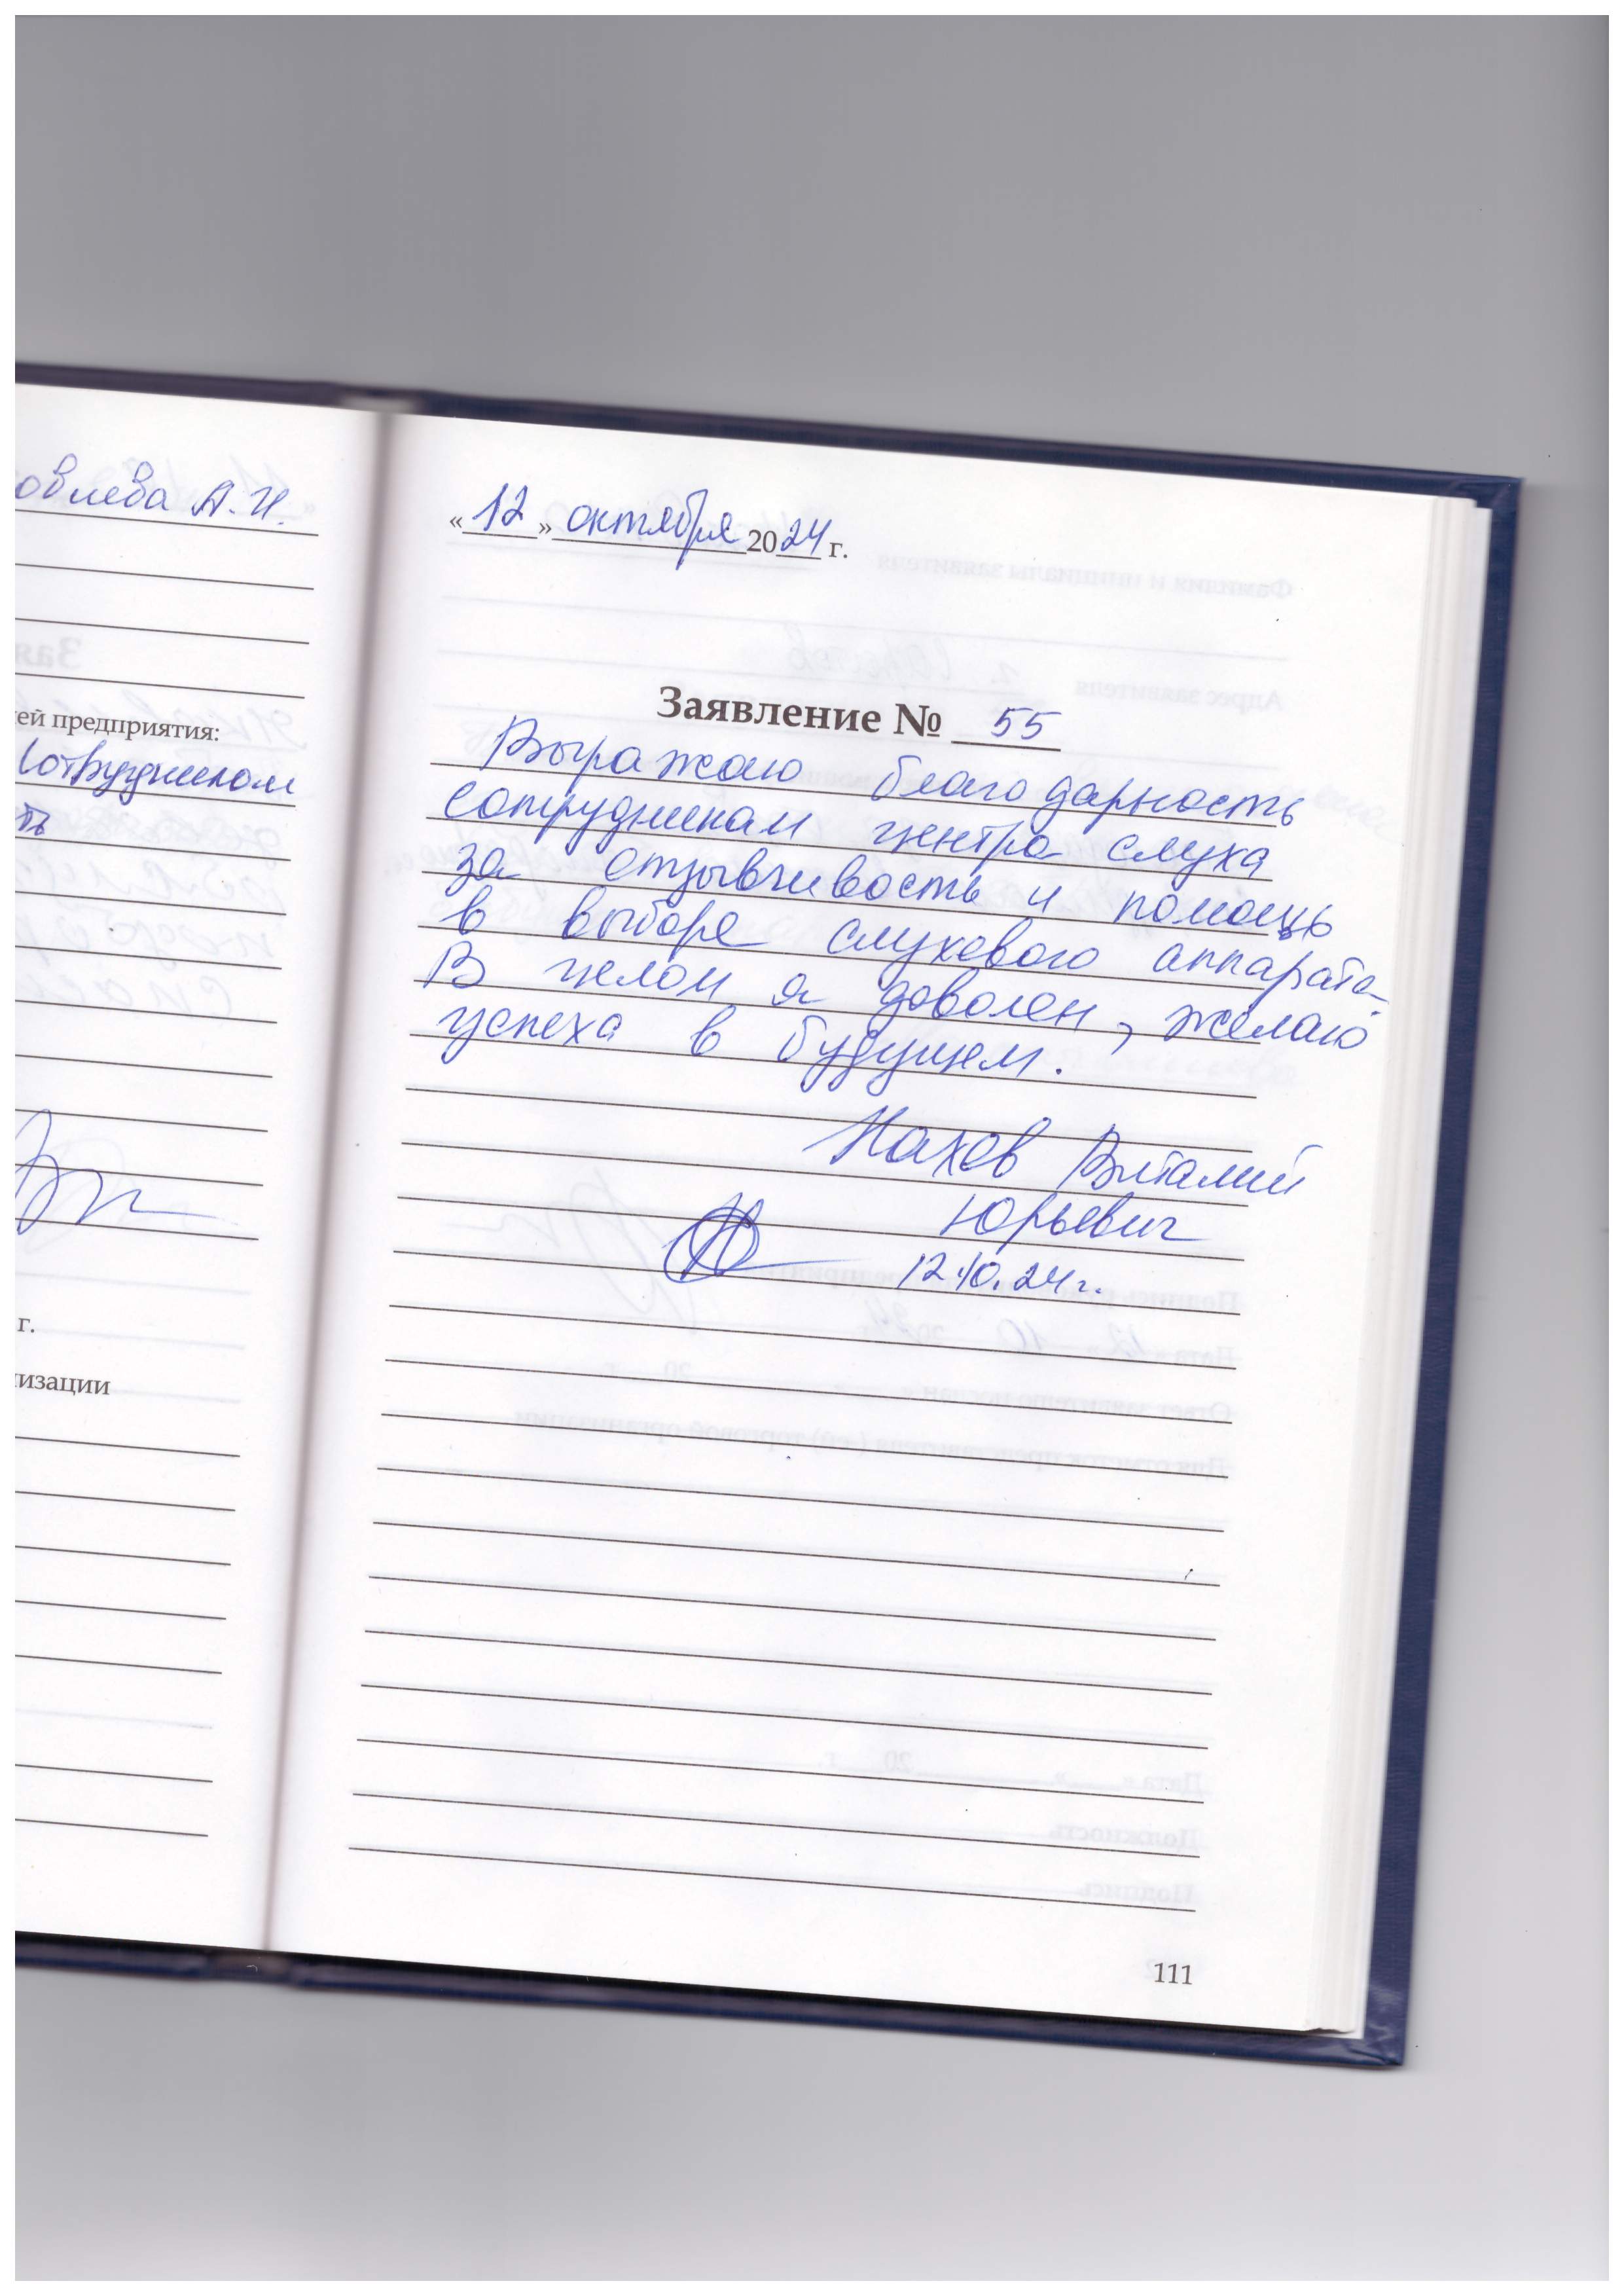 А.И.
ей предприятия:
Сотрудником
ть
г.
изации
«12» октября 2024 г.
Заявление № 55
Выражаю благодарность
сотрудникам центра слуха
за отзывчивость и помощь
в выборе слухового аппарата.
В целом я доволен, желаю
успеха в будущем.
Нахов Виталий
Юрьевич
12.10.24г.
111